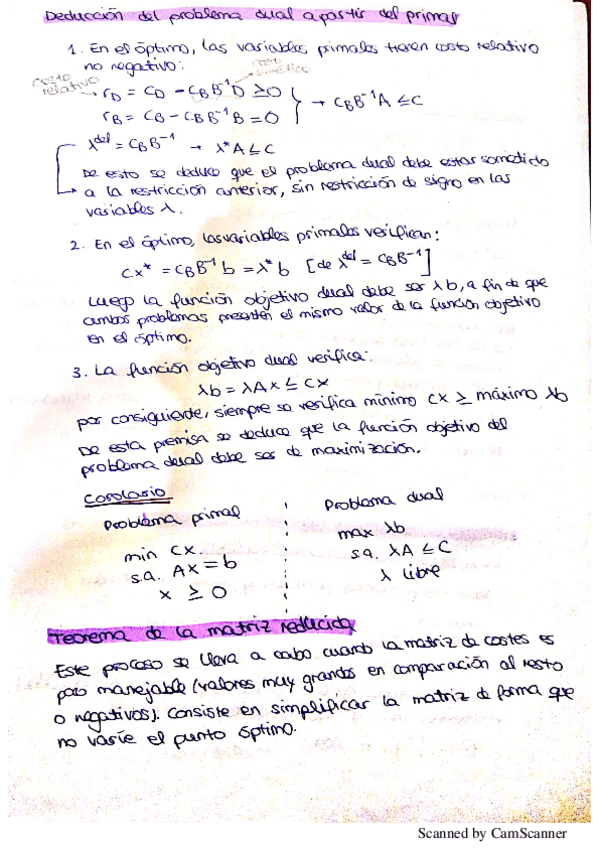 Deducción del problema dual a partir del primal
1. En el óptimo, las variables primales tienen costo relativo
no negativo:
costo relativo
costo sintético
r_D = C_D - C_B B⁻¹ D ≥ 0
r_B = C_B - C_B B⁻¹ B = 0
→ C_B B⁻¹ A ≤ C
λ^def = C_B B⁻¹ → λ* A ≤ C
De esto se deduce que el problema dual debe estar sometido
a la restricción anterior, sin restricción de signo en las
variables λ.
2. En el óptimo, las variables primales verifican:
Cx* = C_B B⁻¹ b = λ* b [de λ^def = C_B B⁻¹]
Luego la función objetivo dual debe ser λb, a fin de que
ambos problemas presenten el mismo valor de la función objetivo
en el óptimo.
3. La función objetivo dual verifica:
λb = λAx ≤ Cx
por consiguiente, siempre se verifica mínimo Cx ≥ máximo λb
De esta premisa se deduce que la función objetivo del
problema dual debe ser de maximización.
Corolario
Problema primal
min Cx
s.a. Ax = b
x ≥ 0
Problema dual
max λb
s.a. λA ≤ C
λ libre
Teorema de la matriz reducida
Este proceso se lleva a cabo cuando la matriz de costes es
poco manejable (valores muy grandes en comparación al resto
o negativos). Consiste en simplificar la matriz de forma que
no varíe el punto óptimo.
Scanned by CamScanner